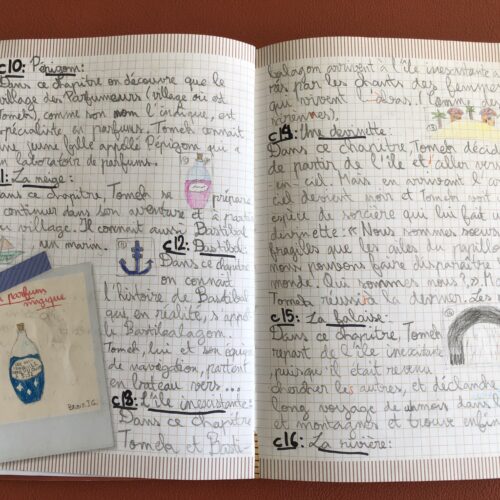 c10: Périgom:
Dans ce chapitre on découvre que le
village des Parfumeurs (village où est
Tomek), comme son nom l'indique, est
spécialiste, en parfums. Tomek connait
une jeune fille appelée Périgom que a
un laboratoire de parfums.
1: La neige:
Dans ce chapitre, Tomek se prépare
continuer dans son aventure et à partir
du village. Il connait aussi Bastibal
un marin.
c12: Bastibal:
Dans ce chapitre
on connait
l'histoire de Bastibal
que, en réalité, s'appel
Bastibalagom.
Tomek, lui et son équipe
de navegation, partent
en bateau vers...
c13: L'île inexistante:
Dans ce chapitre
Tomek et Basti
parfums
magique
balagom arrivent à l'île inexistante
ras par les chants des femmes
qui vivent là-bas. (
c14: Une devinette:
Dans ce chapitre, Tomek décide
de partir de l'île et aller vers
en-ciel. Mais en arrivant l'a
ciel devient noir et Tomek voit
espèce de sorcière qui lui fait
devinette: « Nous sommes soeurs
fragiles que les ailes du papillon
nous pouvons faire disparaître
monde. Qui sommes nous? »
Tomek réussira la deviner.
c15: La falaise:
Dans ce chapitre, Tomek
repart de l'île inexistante
puisqu'il était revenu
chercher les autres, et déclanche
long voyage de dans
et montagnes et trouve enfin
c16: La rivière: